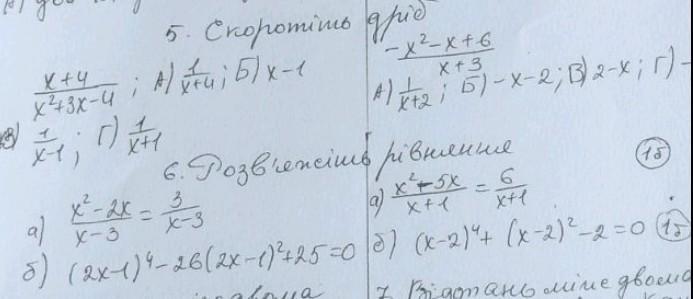 5. Скоротіть дріб
x+4/x²+3x-4; А) 1/x+4; Б) x-1
В) 1/x-1; Г) 1/x+1
-x²-x+6/x+3
А) 1/x+2; Б) -x-2; В) 2-x; Г) -
6. Розв'яжіть рівняння
а) x²-2x/x-3 = 3/x-3
б) (2x-1)⁴-26(2x-1)²+25=0
а) x²-5x/x+1 = 6/x+1
1б
б) (x-2)⁴+(x-2)²-2=0
1б
7. Відстань між двома